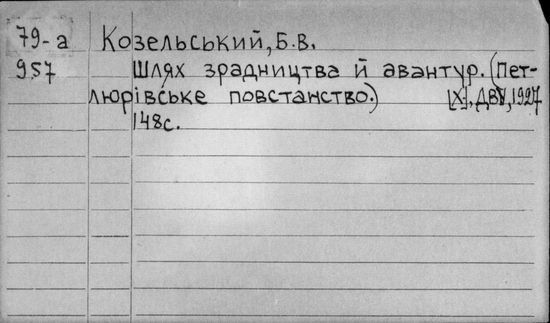 79-а Козельський, Б.В.
957 Шлях зрадництва й авантур. (Пет-
люрівське повстанство.) [Х], ДВУ, 1927
148с.